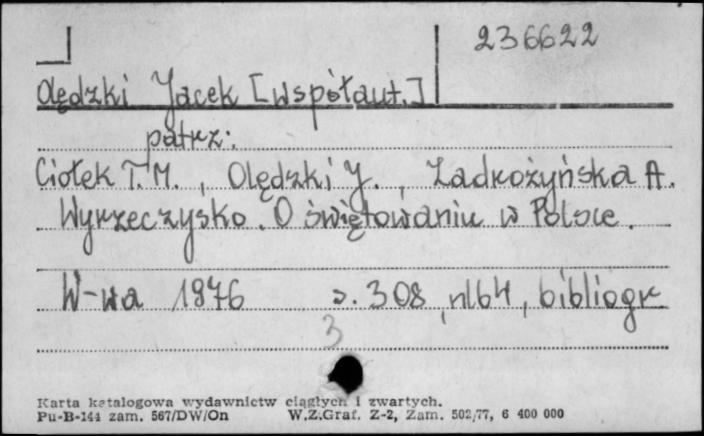 236622
Olędzki Jacek [współaut.]
patrz:
Ciołek T.M., Olędzki J., Zadrożyńska A.
Wyrzeczysko. O świętowaniu w Polsce.
W-wa 1976 s. 308, nlb4, bibliogr
3
Karta katalogowa wydawnictw ciągłych i zwartych.
Pu-B-144 zam. 567/DW/On W.Z.Graf. Z-2, Zam. 502/77, 6 400 000